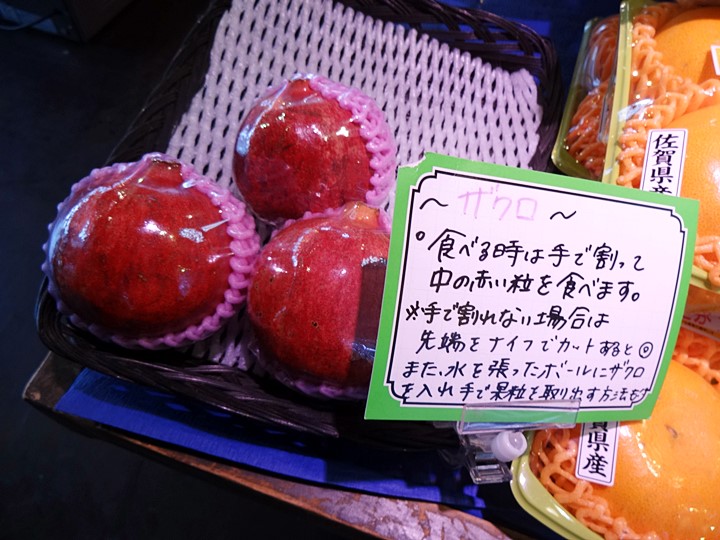 ～ ザクロ ～
○食べる時は手で割って
中の赤い粒を食べます。
※手で割れない場合は
先端をナイフでカットすると◎
また、水を張ったボールにザクロ
を入れ手で果粒を取り出す方法も
佐賀県産
賀県産